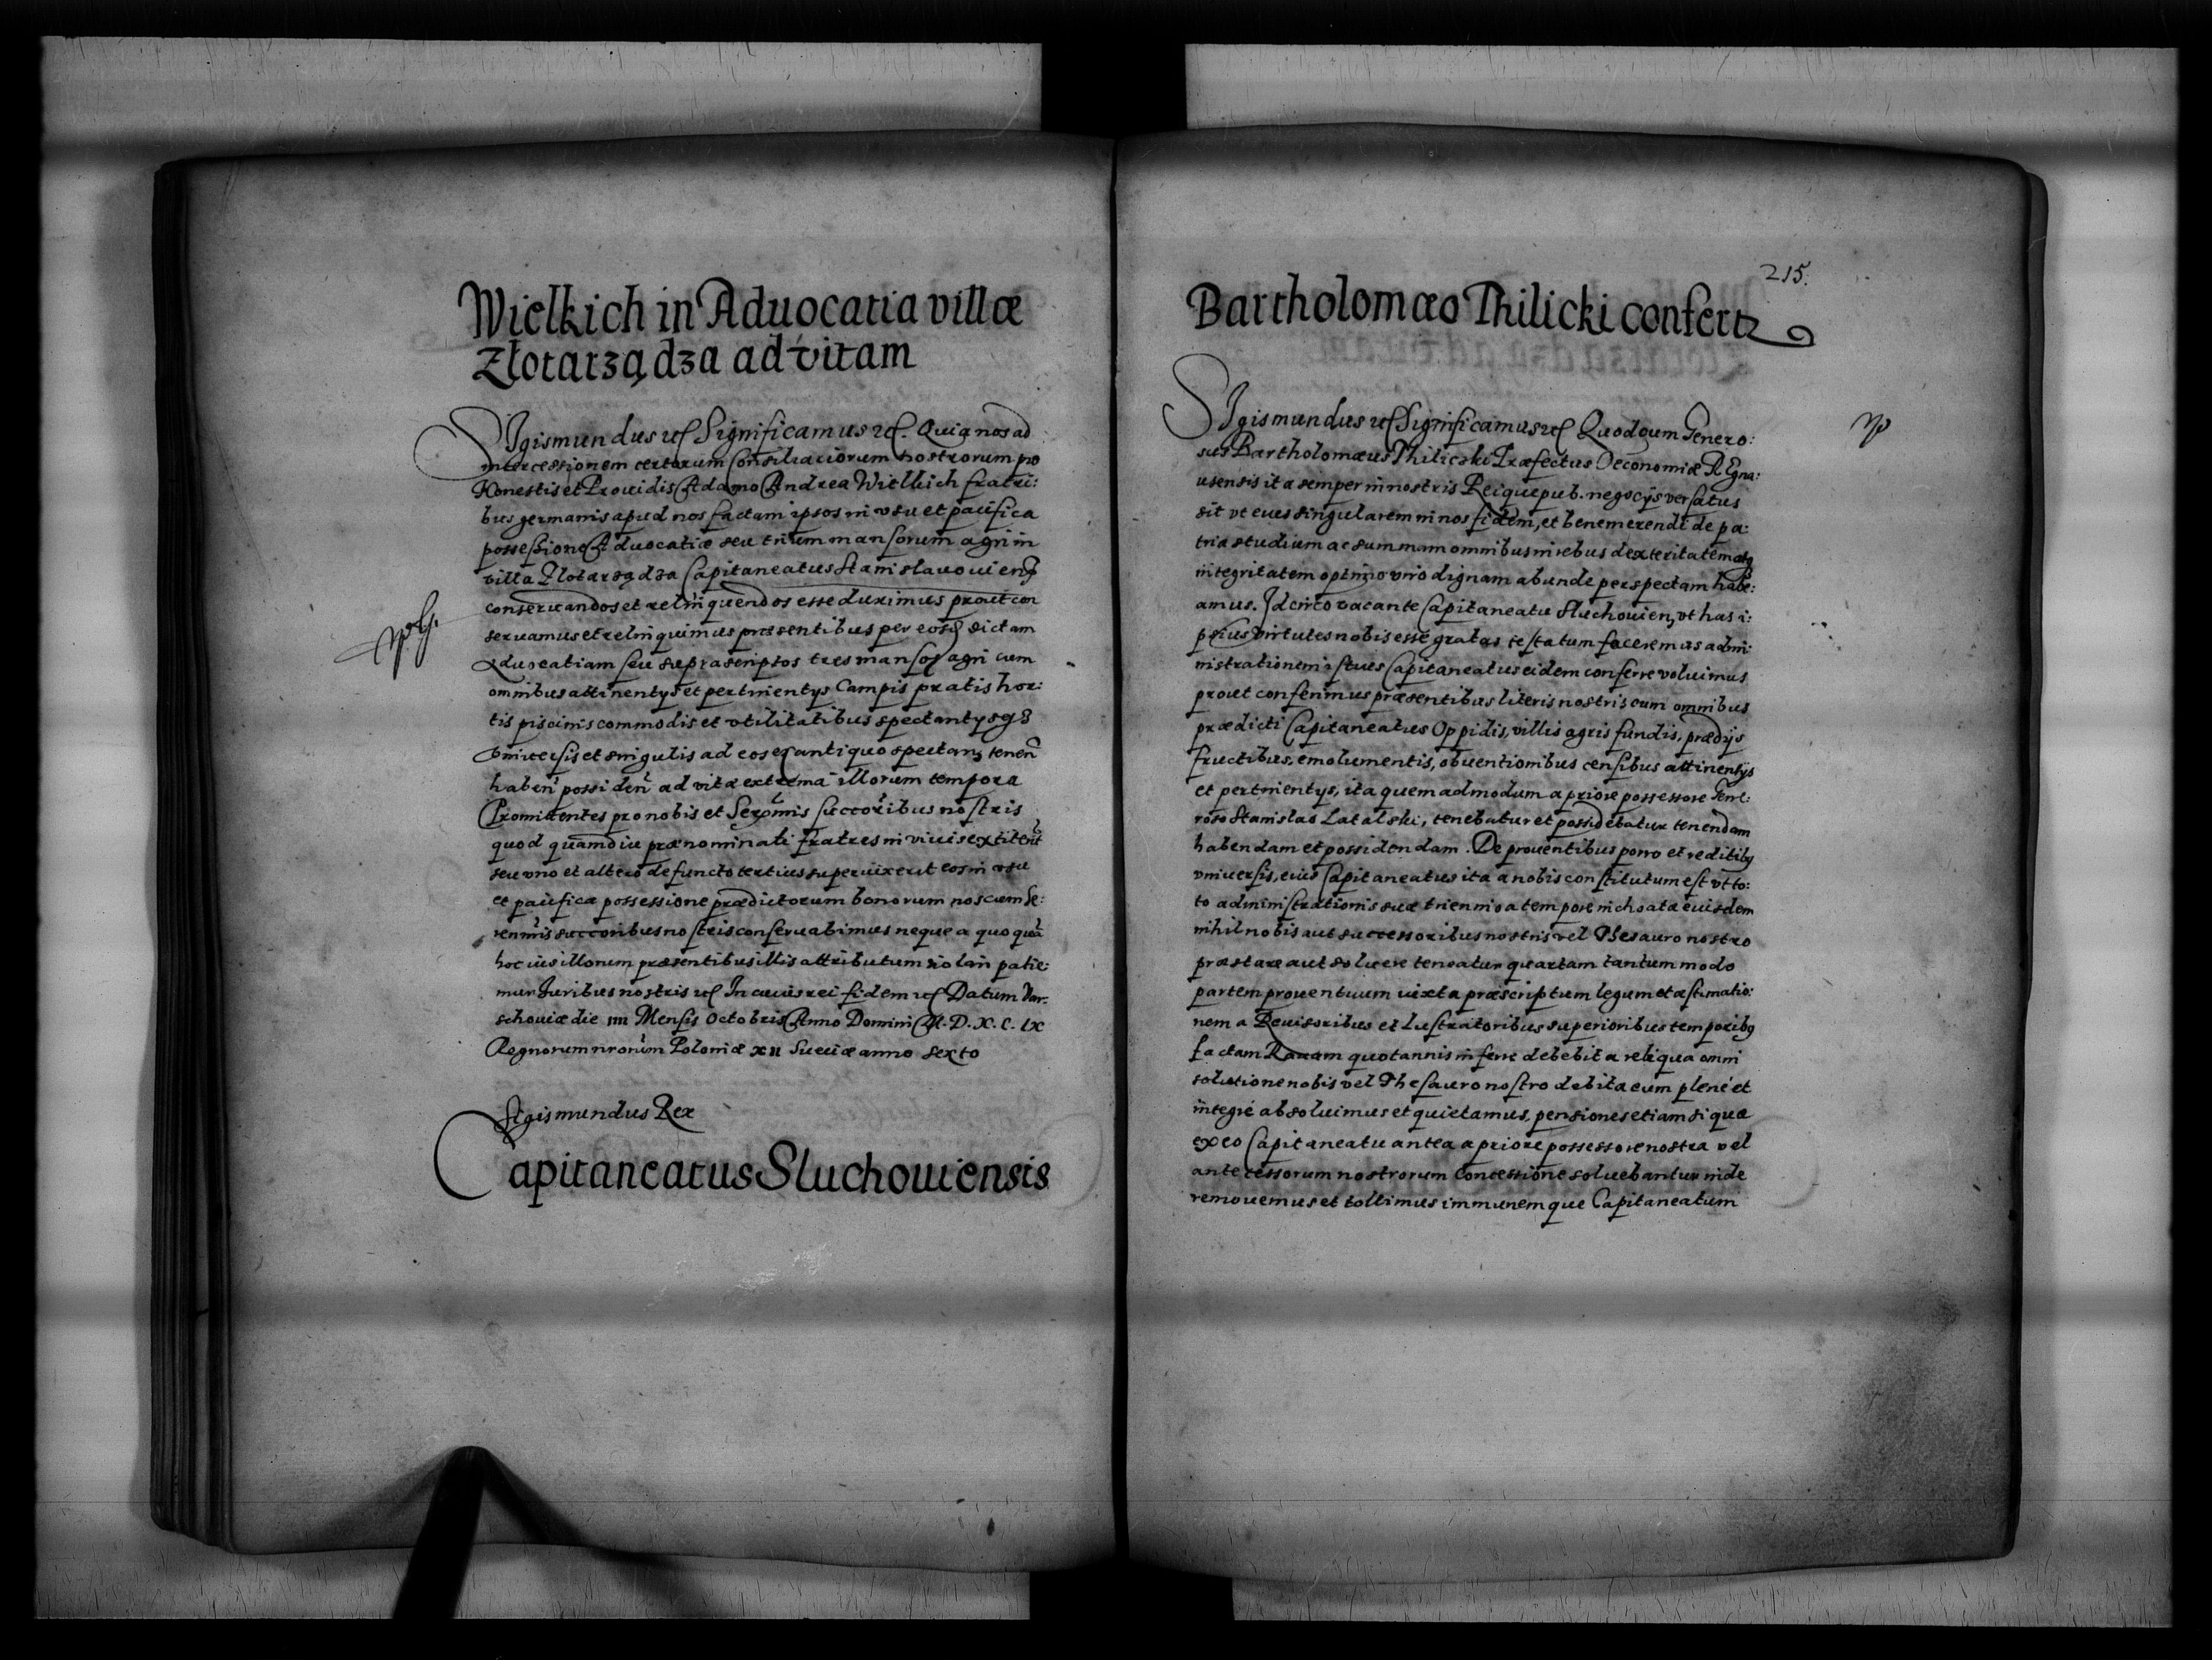 Wielkich in Aduocatia villæ
Złotarządza ad vitam
Sigismundus etc Significamus etc. Quia nos ad
intercessionem certorum Consiliariorum nostrorum pro
Honestis et Prouidis Adamo Andrea Wielkich fratri:
bus germanis apud nos factam ipsos in vsu et pacifica
possessione Aduocatiæ seu trium mansorum agri in
villa Zlotarządza Capitaneatus Stanislauouien
conseruandos et relinquendos esse duximus prout con
seruamus et relinquimus præsentibus per eosq dictam
Aduocatiam seu suprascriptos tres mansos agri cum
omnibus attinentys et pertinentys Campis pratis hor:
tis piscinis commodis et vtilitatibus spectantysq
Vniuersis et singulis ad eos ex antiquo spectan tenen
haben possiden ad vitæ extrema illorum tempora
Promittentes pro nobis et Serenmis succoribus nostris
quod quamdiu prænominati fratres in viuis extiterint
seu vno et altero defuncto tertius superuixerit eos in vsu
et pacifica possessione prædictorum bonorum nos cum Se:
renmis succoribus nostris conseruabimus neque a quoquã
hoc ius illorum præsentibus illis attributum violari patie:
mur Iuribus nostris etc In cuius rei fidem etc Datum Var:
schouiæ die IIII Mensis Octobris Anno Domini M.D.X.C.IX
Regnorum nrorum Poloniæ XII Sueciæ anno sexto
Sigismundus Rex
Capitaneatus Sluchouiensis
215.
Bartholomæo Thilicki confertur
Sigismundus etc Significamus etc Quod cum Genero:
sus Bartholomæus Thiliczki Præfectus Oeconomiæ Rogna:
usensis ita semper in nostris Reique pub. negocys versatus
sit vt eius singularem in nos fidem, et bene merendi de pa:
tria studium ac summam omnibus in rebus dexteritatem atq
integritatem optimo viro dignam abunde perspectam habe:
amus. Idcirco vacante Capitaneatu Sluchouien, vt has i:
psius virtutes nobis esse gratas testatum faceremus admi:
nistrationem istius Capitaneatus eidem conferre voluimus
prout conferimus præsentibus literis nostris cum omnibus
prædicti Capitaneatus Oppidis, villis agris fundis, prædijs
fructibus, emolumentis, obuentionibus censibus attinentys
et pertinentys, ita quemadmodum a priore possessore Gene:
roso Stanislao Latalski, tenebatur et possidebatur tenendam
habendam et possidendam. De prouentibus porro et reditibus
vniuersis, eius Capitaneatus ita a nobis constitutum est vt to:
to administrationis suæ triennio a tempore inchoatæ eiusdem
nihil nobis aut successoribus nostris vel Thesauro nostro
præstare aut soluere teneatur quartam tantummodo
partem prouentuum iuxta præscriptum legum et æstimatio:
nem a Reuisoribus et Lustratoribus superioribus temporibus
factam Rauam quotannis inferre debebit a reliqua omni
solutione nobis vel Thesauro nostro debita eum plene et
integre absoluimus et quietamus, pensiones etiam si quæ
ex eo Capitaneatu antea a priore possessore nostra vel
antecessorum nostrorum concessione soluebantur inde
remouemus et tollimus immunemque Capitaneatum